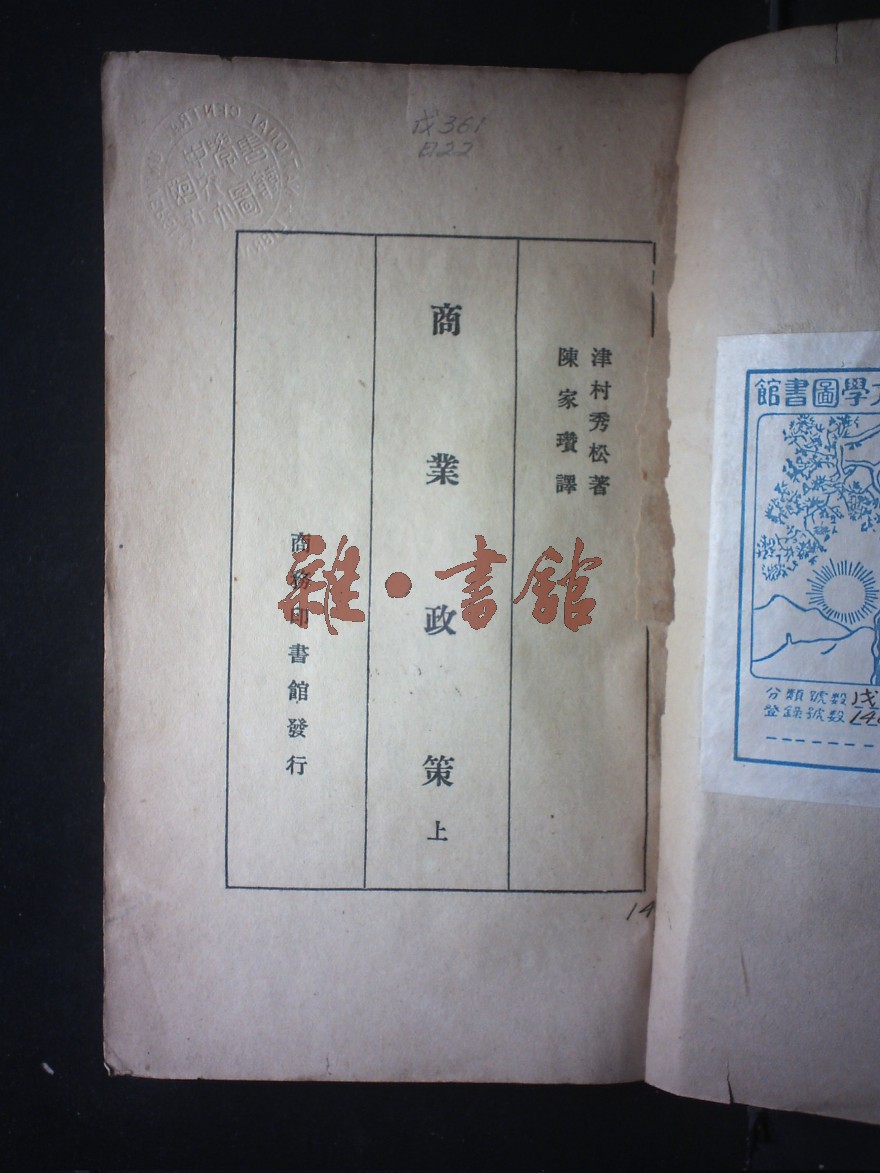 戊361
日22
津村秀松著
陳家瓚譯
商業政策上
商務印書館發行
雜·書館
14
學圖書館
分類號數 戊
登錄號數 14